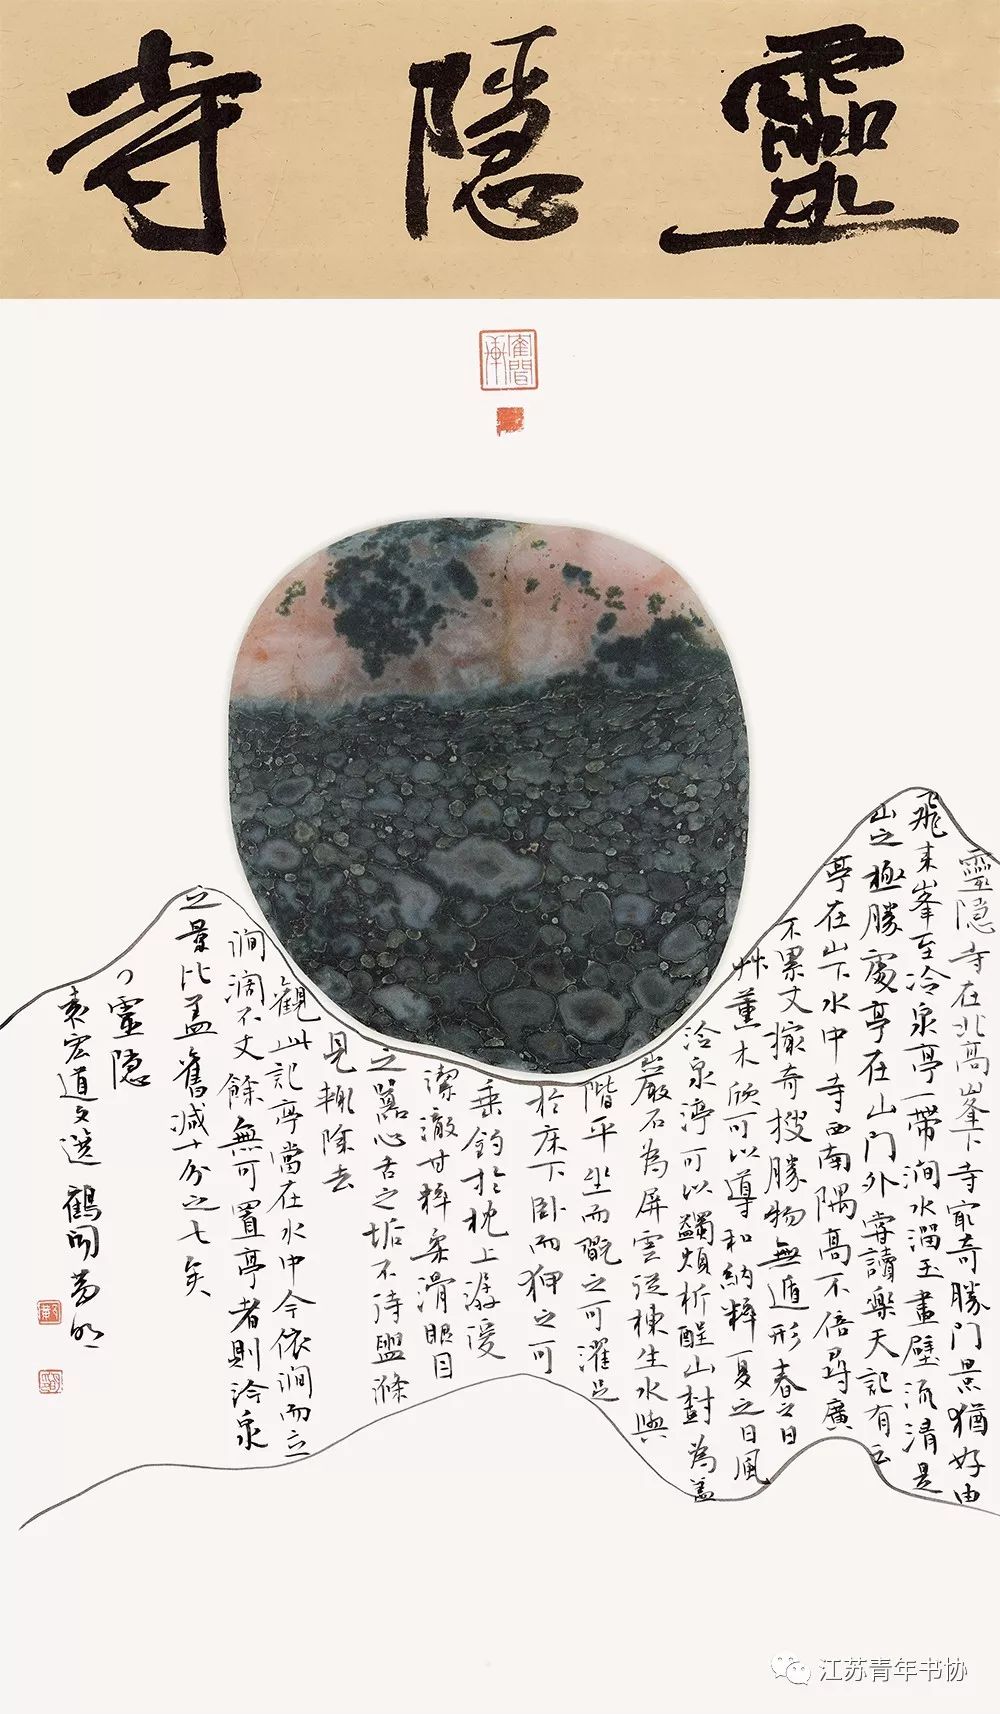 靈隱寺
靈隐寺在北高峯下寺㝡奇勝門景猶好由
飛来峯至冷泉亭一带澗水溜玉畫壁流清是
山之極勝處亭在山門外嘗讀樂天記有云
亭在山下水中寺西南隅高不倍尋廣
不累丈撮奇搜勝物無遁形春之日
艸薰木欣可以導和納粹夏之日風
泠泉渟可以蠲煩析酲山樹為盖
巖石為屏雲從棟生水與
階平坐而翫之可濯足
於床下卧而狎之可
垂釣於枕上潺湲
潔澈甘粹柔滑眼目
之嚣心舌之垢不待盥滌
見輙除去
觀此記亭當在水中今依澗而立
澗濶不丈餘無可置亭者則冷泉
之景比盖舊减十分之七矣
靈隐
袁宏道文選 鶴間
江苏青年书协